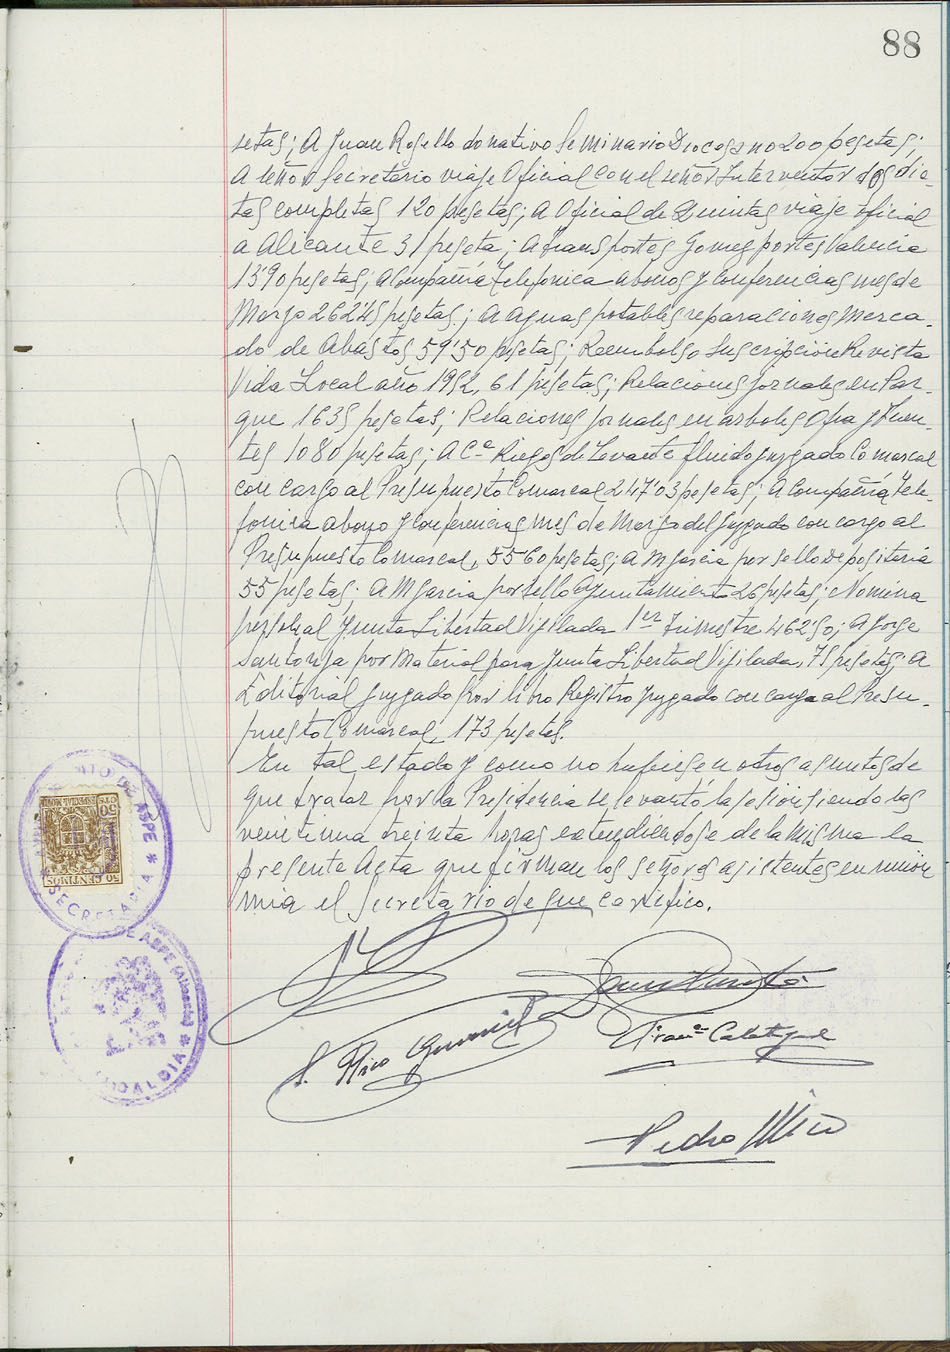 88
setas; A Juan Rosello donativo Seminario Diocesano 200 pesetas;
A señor Secretario viaje Oficial con el señor Interventor dos die-
tas completas 120 pesetas; A Oficial de Quintas viaje oficial
a Alicante 31 peseta; A transportes Gomez portes Valencia
13'90 pesetas; A Compañia Telefonica abonos y conferencias mes de
Marzo 262'45 pesetas; A Aguas potables reparaciones Merca-
do de Abastos 59'50 pesetas; Reembolso suscripcion Revista
Vida Local año 1952, 61 pesetas; Relaciones jornales en Par-
que 1635 pesetas; Relaciones jornales en arboles Ofra y Fuen-
tes 1080 pesetas; A Cª Riegos de Levante fluido juzgado Comarcal
con cargo al Presupuesto Comarcal 247'03 pesetas; A Compañia Tele-
fonica abono y conferencias mes de Marzo del Juzgado con cargo al
Presupuesto Comarcal, 55'60 pesetas; A M Garcia por sello Depositaria
55 pesetas; A M Garcia por sello Ayuntamiento 26 pesetas; Nomina
personal Junta Libertad Vigilada 1er Trimestre 462'50; A Jorge
Santonja por Material para Junta Libertad Vigilada, 75 pesetas; A
Editorial Juzgado por libro Registro juzgado con cargo al Presu-
puesto Comarcal, 173 pesetas.
En tal estado y como no hubiesen otros asuntos de
que tratar por la Presidencia se levantó la sesion siendo las
veintiuna treinta horas extendiendose de la misma la
presente Acta que firman los señores asistentes en
mia el Secretario de que certifico.
Franco Calatayud
Pedro Mico
AYUNTAMIENTO DE ASPE * SECRETARIA *
50 CENTIMOS
ESPECIAL MOVIL
50 CTS
DE ASPE (Alicante) * ALCALDIA *